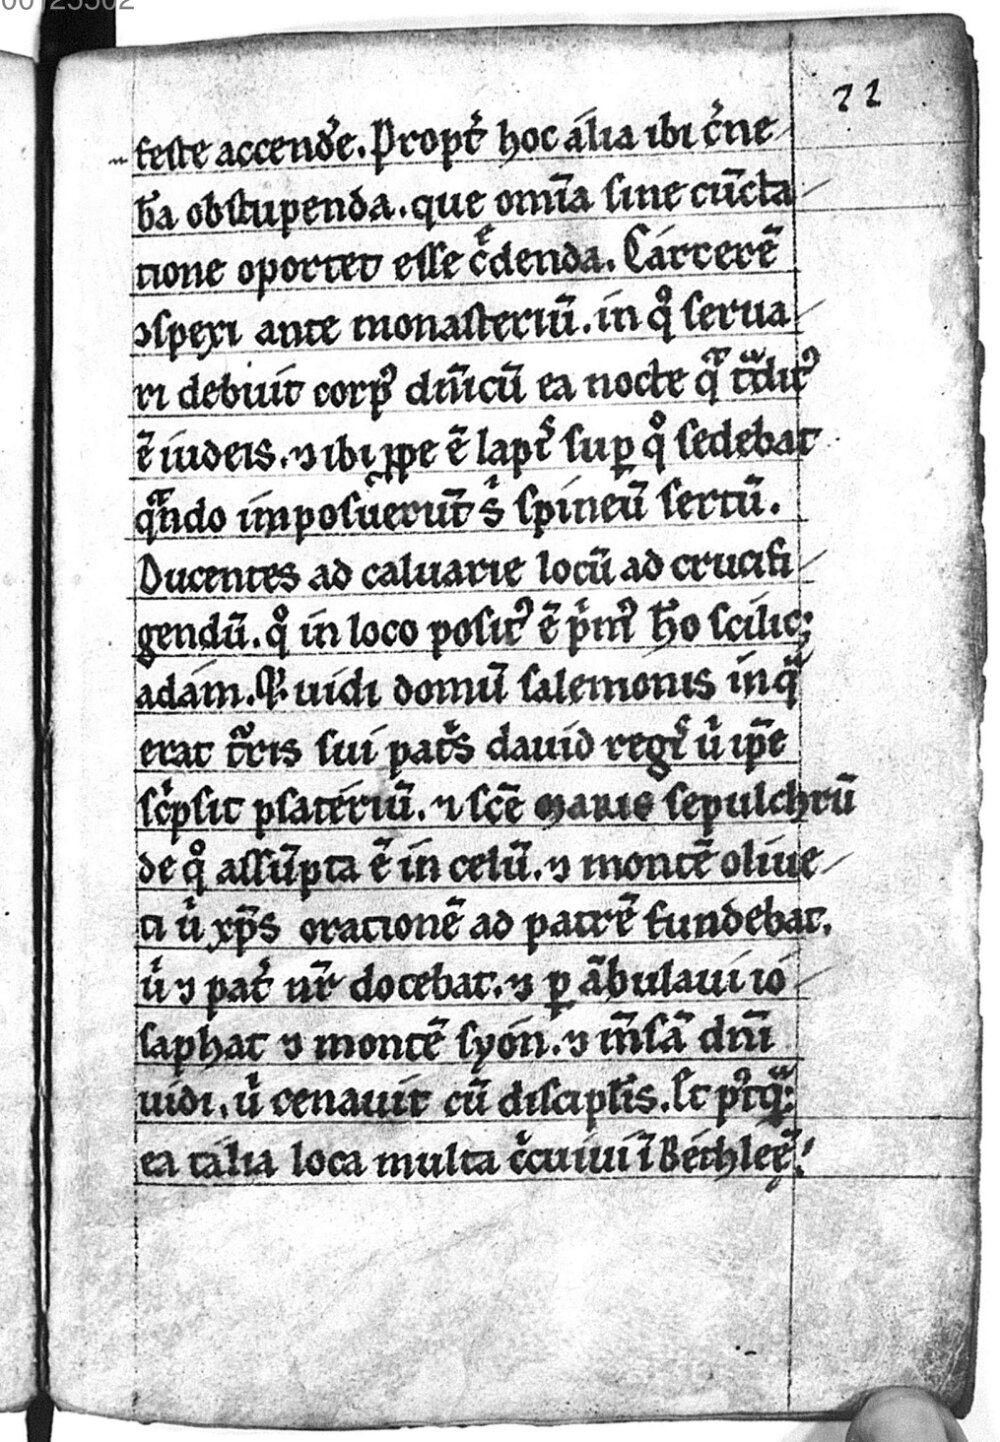 00125502
22
feste accend̉e. Propt̉ hoc alia ibi c̉ne
b̉a obstupenda. que om̄ia sine cūcta
tione oportet esse cͤdenda. Carcerē
ↄspexi ante monasteriū. in qͦ serua
ri debuit corpꝰ dn̄icū ea nocte qᷓ tᷓditꝰ
ē iudeis. ⁊ ibi ꝓpe ē lapiͥs sup̱ qͦ sedebat
qᷓndo imposuerūt sͥ spineū sertū.
Ducentes ad caluarie locū ad crucifi
gendū. qͦ in loco positꝰ ē pͥmꝰ ħo scilicꝫ
adam. uidi domū salemonis in qᷓ
erat tᷓris sui pat̉s dauid regͥ uͥ ip̄e
scͥpsit psateriū. ⁊ scē marie sepulchrū
de qͦ assūpta ē in celū. ⁊ montē oliue
ti uͥ xp̄s orationē ad patrē fundebat.
uͥ ⁊ pat̉ nr̄ docebat. ⁊ p̱ ābulaui io
saphat ⁊ montē syon. ⁊ m̄sā dn̄i
uidi. uͥ cenauit cū discipl̉is. s̄t pꝰtqᷓ:
ea talia loca multa c̉cuiui ī Bethleē.